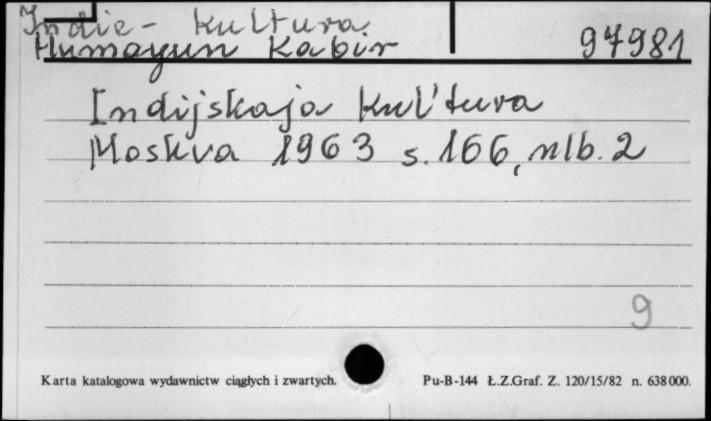 Indie - kultura
Humayun Kabir 97981
Indijskaja kul'tura
Moskva 1963 s. 166, nlb. 2
9
Karta katalogowa wydawnictw ciągłych i zwartych. Pu-B-144 Ł.Z.Graf. Z. 120/15/82 n. 638 000.